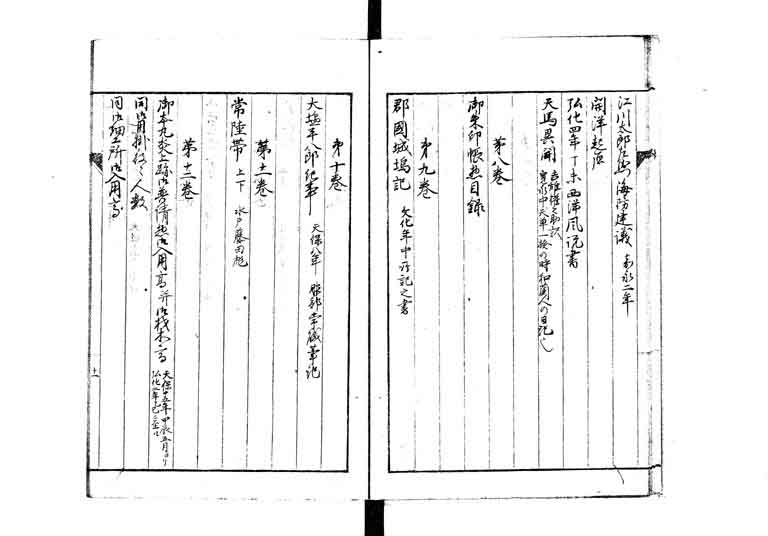 江川太郎左衛門海防建議 嘉永二年
開洋起原
弘化四年丁未西洋風説書
天馬異聞 吉雄権之助訳
寛永中天草一揆の時和蘭人の日記也
第八巻
御朱印帳惣目録
第九巻
郡國城塢記 文化年中所記之書
第十巻
大塩平八郎紀事 天保八年 服部 筆記
第十一巻
常陸帯 上下 水戸藤田彪
第十二巻
御本九炎上跡御普請惣御入用高并御材木高 天保十五年甲辰五月より
弘化二年巳
同御用掛役々人数
同御細工所御入用高
十一